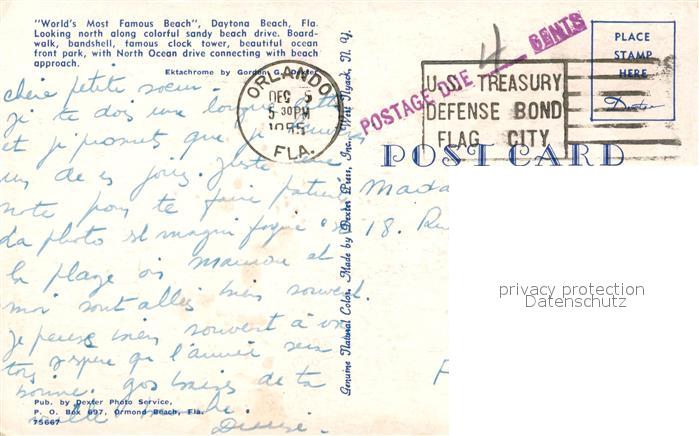 "World's Most Famous Beach", Daytona Beach, Fla.
Looking north along colorful sandy beach drive. Board-
walk, bandshell, famous clock tower, beautiful ocean
front park, with North Ocean drive connecting with beach
approach.
Ektachrome by Gordon G. Dexter
chère petite soeur
je te dois une longue
et je promets que je
un de ces jours. Juste une
note pour te faire patienter
la photo est magnifique
la plage où maman et
moi sont allés bien souvent.
je pense bien souvent à vous
tous j'espère que l'année sera
bonne. gros baisers de ta
Denise.
Pub. by Dexter Photo Service,
P. O. Box 697, Ormond Beach, Fla.
75667
Genuine Natural Color. Made by Dexter Press, Inc., West Nyack, N. Y.
ORLANDO
DEC 5
5 30 PM
FLA.
POSTAGE DUE 4 CENTS
U.S. TREASURY
DEFENSE BOND
FLAG CITY
PLACE
STAMP
HERE
Dexter
POST CARD
Mada
18. Ru
F
privacy protection
Datenschutz